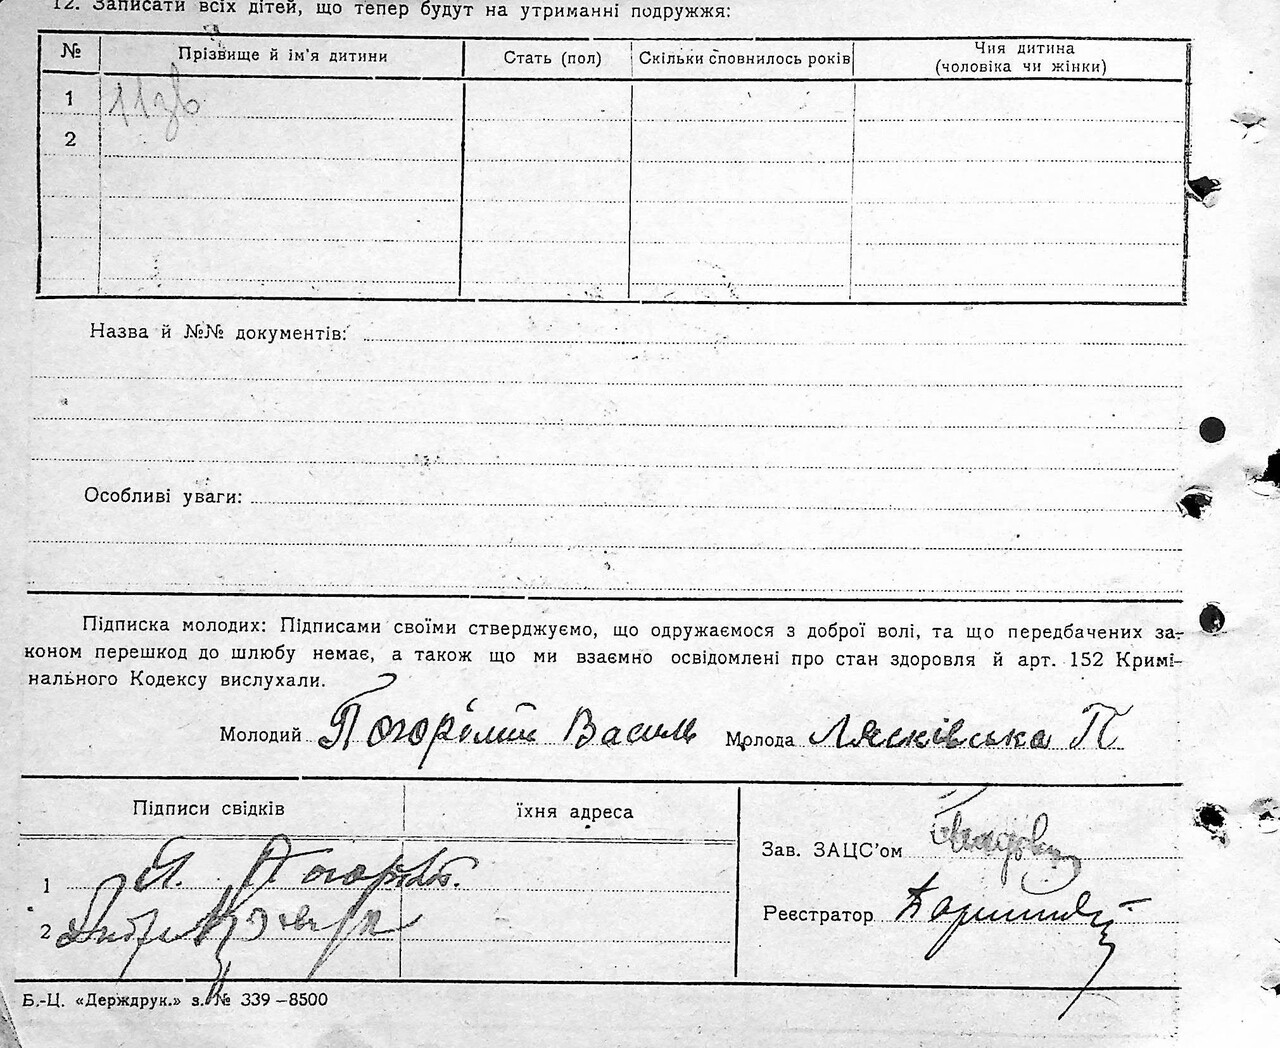 12. Записати всіх дітей, що тепер будут на утриманні подружжя:
№ Прізвище й ім'я дитини Стать (пол) Скільки сповнилось років Чия дитина (чоловіка чи жінки)
1
2
Назва й №№ документів:
Особливі уваги:
Підписка молодих: Підписами своїми стверджуємо, що одружаємося з доброї волі, та що передбачених за-
коном перешкод до шлюбу немає, а також що ми взаємно освідомлені про стан здоровля й арт. 152 Кримі-
нального Кодексу вислухали.
Молодий Погорілий Василь Молода Лясківська П
Підписи свідків їхня адреса
Зав. ЗАЦС'ом
1
Реєстратор
2
Б.-Ц. «Держдрук.» з. № 339–8500